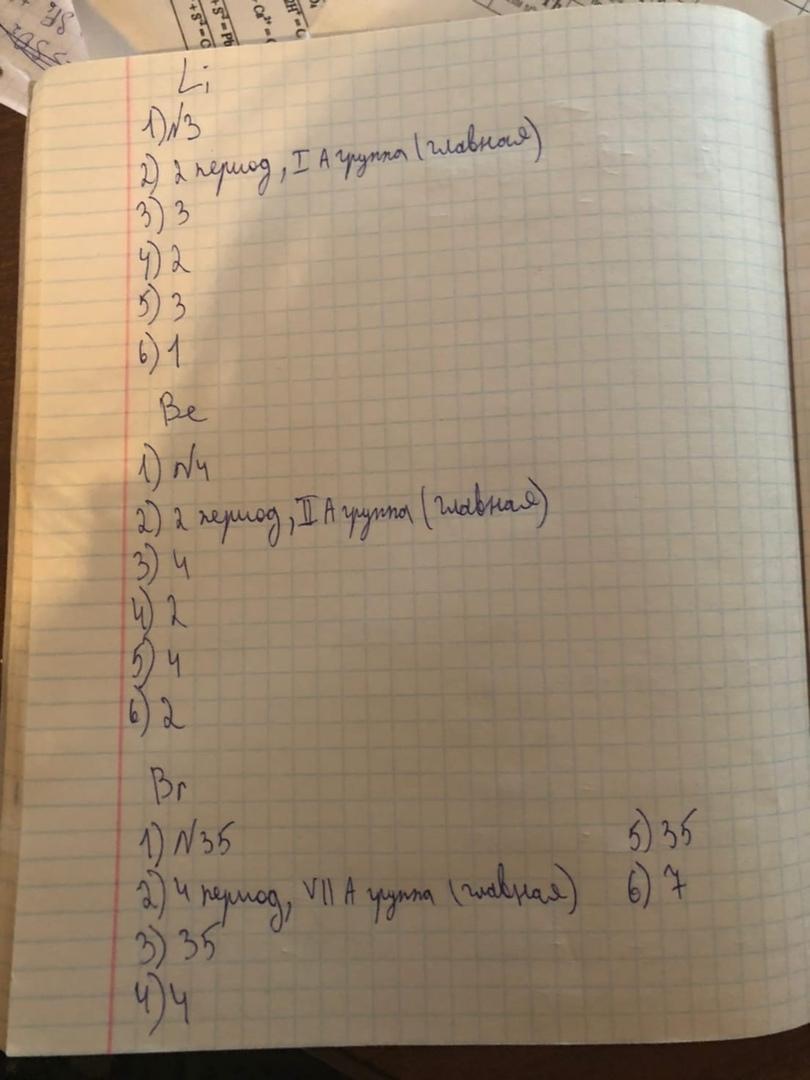 Li
1) N3
2) 2 период, I А группа (главная)
3) 3
4) 2
5) 3
6) 1
Be
1) N4
2) 2 период, II А группа (главная)
3) 4
4) 2
5) 4
6) 2
Br
1) N35
2) 4 период, VII А группа (главная)
3) 35
4) 4
5) 35
6) 7